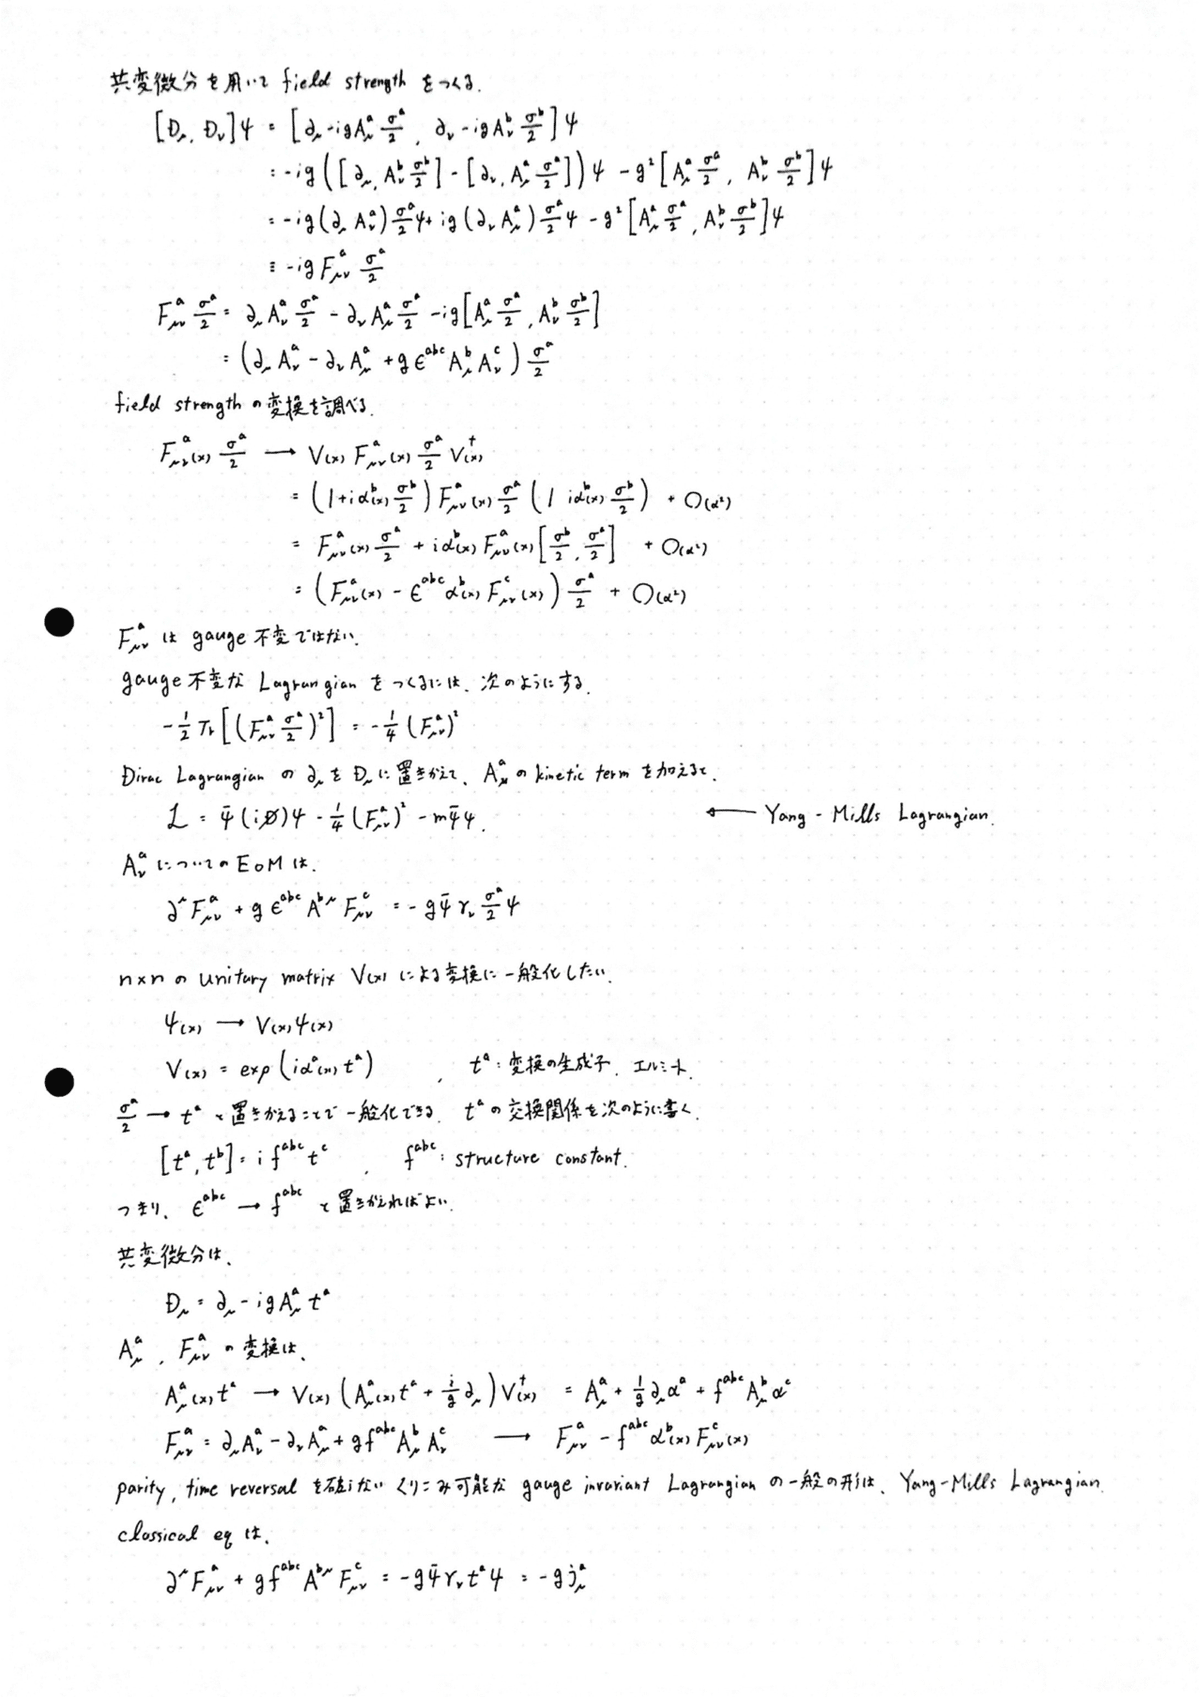 共変微分を用いて field strength をつくる.
[D_μ, D_ν]ψ = [∂_μ - igA^a_μ σ^a/2, ∂_ν - igA^b_ν σ^b/2]ψ
= -ig([∂_μ, A^b_ν σ^b/2] - [∂_ν, A^a_μ σ^a/2])ψ - g²[A^a_μ σ^a/2, A^b_ν σ^b/2]ψ
= -ig(∂_μ A^a_ν)σ^a/2 ψ + ig(∂_ν A^a_μ)σ^a/2 ψ - g²[A^a_μ σ^a/2, A^b_ν σ^b/2]ψ
≡ -ig F^a_μν σ^a/2
F^a_μν σ^a/2 = ∂_μ A^a_ν σ^a/2 - ∂_ν A^a_μ σ^a/2 - ig[A^a_μ σ^a/2, A^b_ν σ^b/2]
= (∂_μ A^a_ν - ∂_ν A^a_μ + g ε^abc A^b_μ A^c_ν) σ^a/2
field strength の変換を調べる.
F^a_μν(x) σ^a/2 → V(x) F^a_μν(x) σ^a/2 V^†(x)
= (1 + iα^b(x) σ^b/2) F^a_μν(x) σ^a/2 (1 iα^b(x) σ^b/2) + O(α²)
= F^a_μν(x) σ^a/2 + iα^b(x) F^a_μν(x) [σ^b/2, σ^a/2] + O(α²)
= (F^a_μν(x) - ε^abc α^b(x) F^c_μν(x)) σ^a/2 + O(α²)
F^a_μν は gauge 不変ではない.
gauge 不変な Lagrangian をつくるには、次のようにする.
-1/2 Tr[(F^a_μν σ^a/2)²] = -1/4 (F^a_μν)²
Dirac Lagrangian の ∂_μ を D_μ に置きかえて、A^a_μ の kinetic term を加えると.
L = ψ̄(iD̸)ψ - 1/4 (F^a_μν)² - mψ̄ψ. ← Yang - Mills Lagrangian.
A^a_ν についての EoM は.
∂^μ F^a_μν + g ε^abc A^bμ F^c_μν = -gψ̄ γ_ν σ^a/2 ψ
n×n の unitary matrix V(x) による変換に一般化したい.
ψ(x) → V(x)ψ(x)
V(x) = exp(iα^a(x) t^a) , t^a : 変換の生成子. エルミート.
σ^a/2 → t^a と置きかえることで一般化できる. t^a の交換関係を次のように書く.
[t^a, t^b] = i f^abc t^c , f^abc : structure constant.
つまり、ε^abc → f^abc と置きかえればよい.
共変微分は、
D_μ = ∂_μ - igA^a_μ t^a
A^a_μ , F^a_μν の変換は、
A^a_μ(x) t^a → V(x) (A^a_μ(x) t^a + i/g ∂_μ) V^†(x) = A^a_μ + 1/g ∂_μ α^a + f^abc A^b_μ α^c
F^a_μν = ∂_μ A^a_ν - ∂_ν A^a_μ + g f^abc A^b_μ A^c_ν → F^a_μν - f^abc α^b(x) F^c_μν(x)
parity, time reversal を破らない くりこみ可能な gauge invariant Lagrangian の一般の形は、Yang-Mills Lagrangian.
classical eq は、
∂^μ F^a_μν + g f^abc A^bμ F^c_μν = -gψ̄ γ_ν t^a ψ = -g j^a_μ